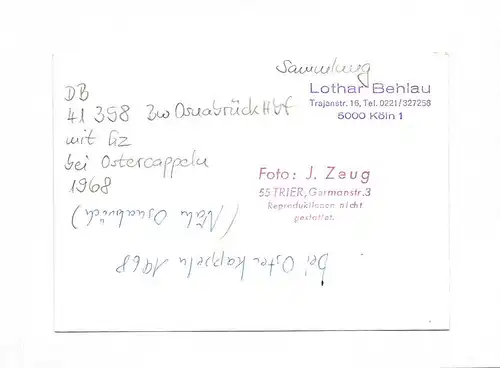 Sammlung
Lothar Behlau
Trajanstr. 16, Tel. 0221/327258
5000 Köln 1
DB
41 358 Bw Osnabrück Hbf
mit Gz
bei Ostercappeln
1968
Foto: J. Zeug
55 TRIER, Germanstr.3
Reproduktionen nicht
gestattet.
(Nähe Osnabrück)
bei Osterkappeln 1968